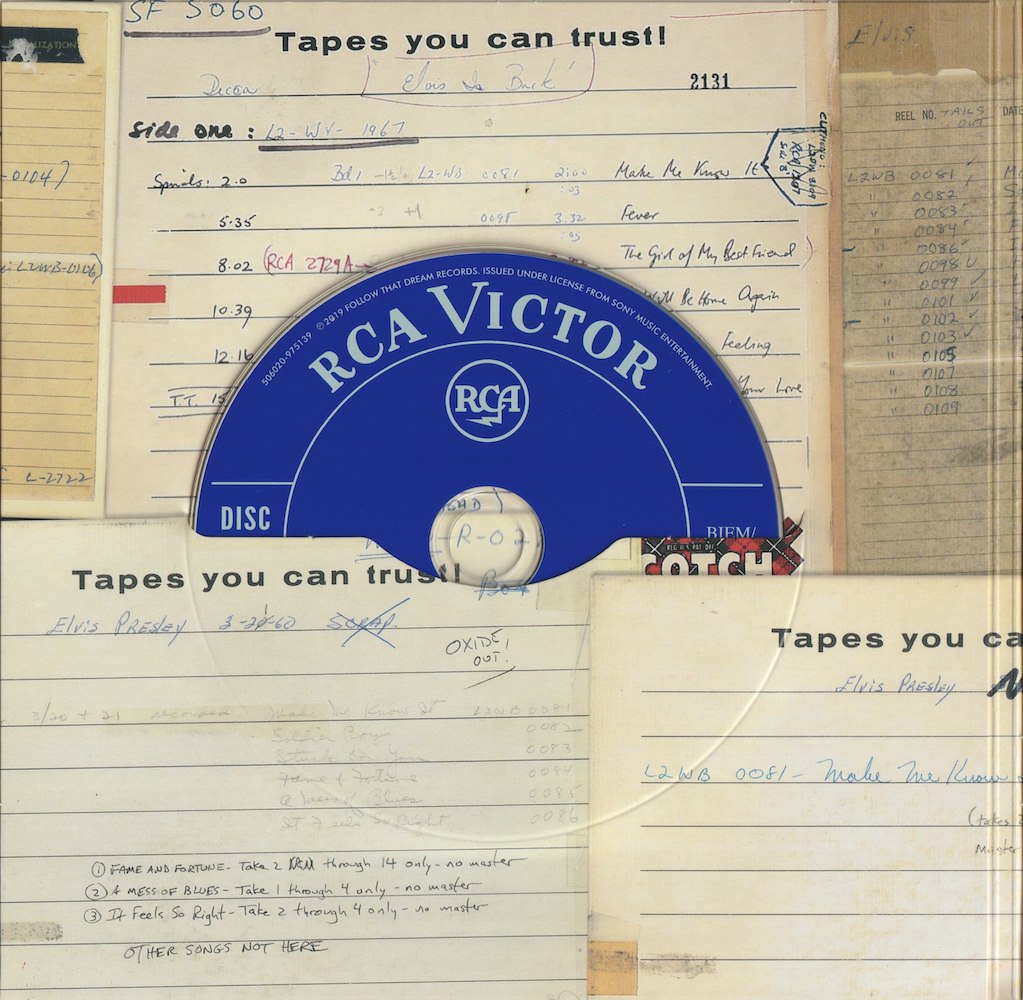 SF 5060
Tapes you can trust!
Decca "Elvis Is Back" 2131
Side one : L2-WV- 1967
Spirals: 2.0 Bd1 -1½+ L2-WB 0081 2:00 Make Me Know It
:03
5.35 -2 +1 0098 3.32 Fever
:05
8.02 (RCA 2729A- The Girl of My Best Friend)
10.39 Will Be Home Again
12.16 Feeling
T.T. 15 Your Love
LIZATION
-0104)
L2WB-0106)
L-2722
Elvis
REEL NO. TAILS OUT DATE
L2WB 0081
" 0082
" 0083
" 0084
" 0086
" 0098
" 0099
" 0101
" 0102
" 0103
" 0105
" 0107
" 0108
" 0109
506020-975139 ℗©2019 FOLLOW THAT DREAM RECORDS. ISSUED UNDER LICENSE FROM SONY MUSIC ENTERTAINMENT.
RCA VICTOR
RCA
DISC
BIEM/
-R-02
REG. U.S. PAT. OFF.
SCOTCH
Tapes you can trust!
Box
Elvis Presley 3-21-60 SCRAP
OXIDE
OUT!
3/20 + 21 recorded Make Me Know It L2WB 0081
Soldier Boy 0082
Stuck On You 0083
Fame & Fortune 0084
A Mess of Blues 0085
It Feels So Right 0086
① FAME AND FORTUNE - Take 2 through 14 only - no master
② A MESS OF BLUES - Take 1 through 4 only - no master
③ It Feels So Right - Take 2 through 4 only - no master
OTHER SONGS NOT HERE
Tapes you ca
Elvis Presley
L2WB 0081 - Make Me Know
(takes
Master